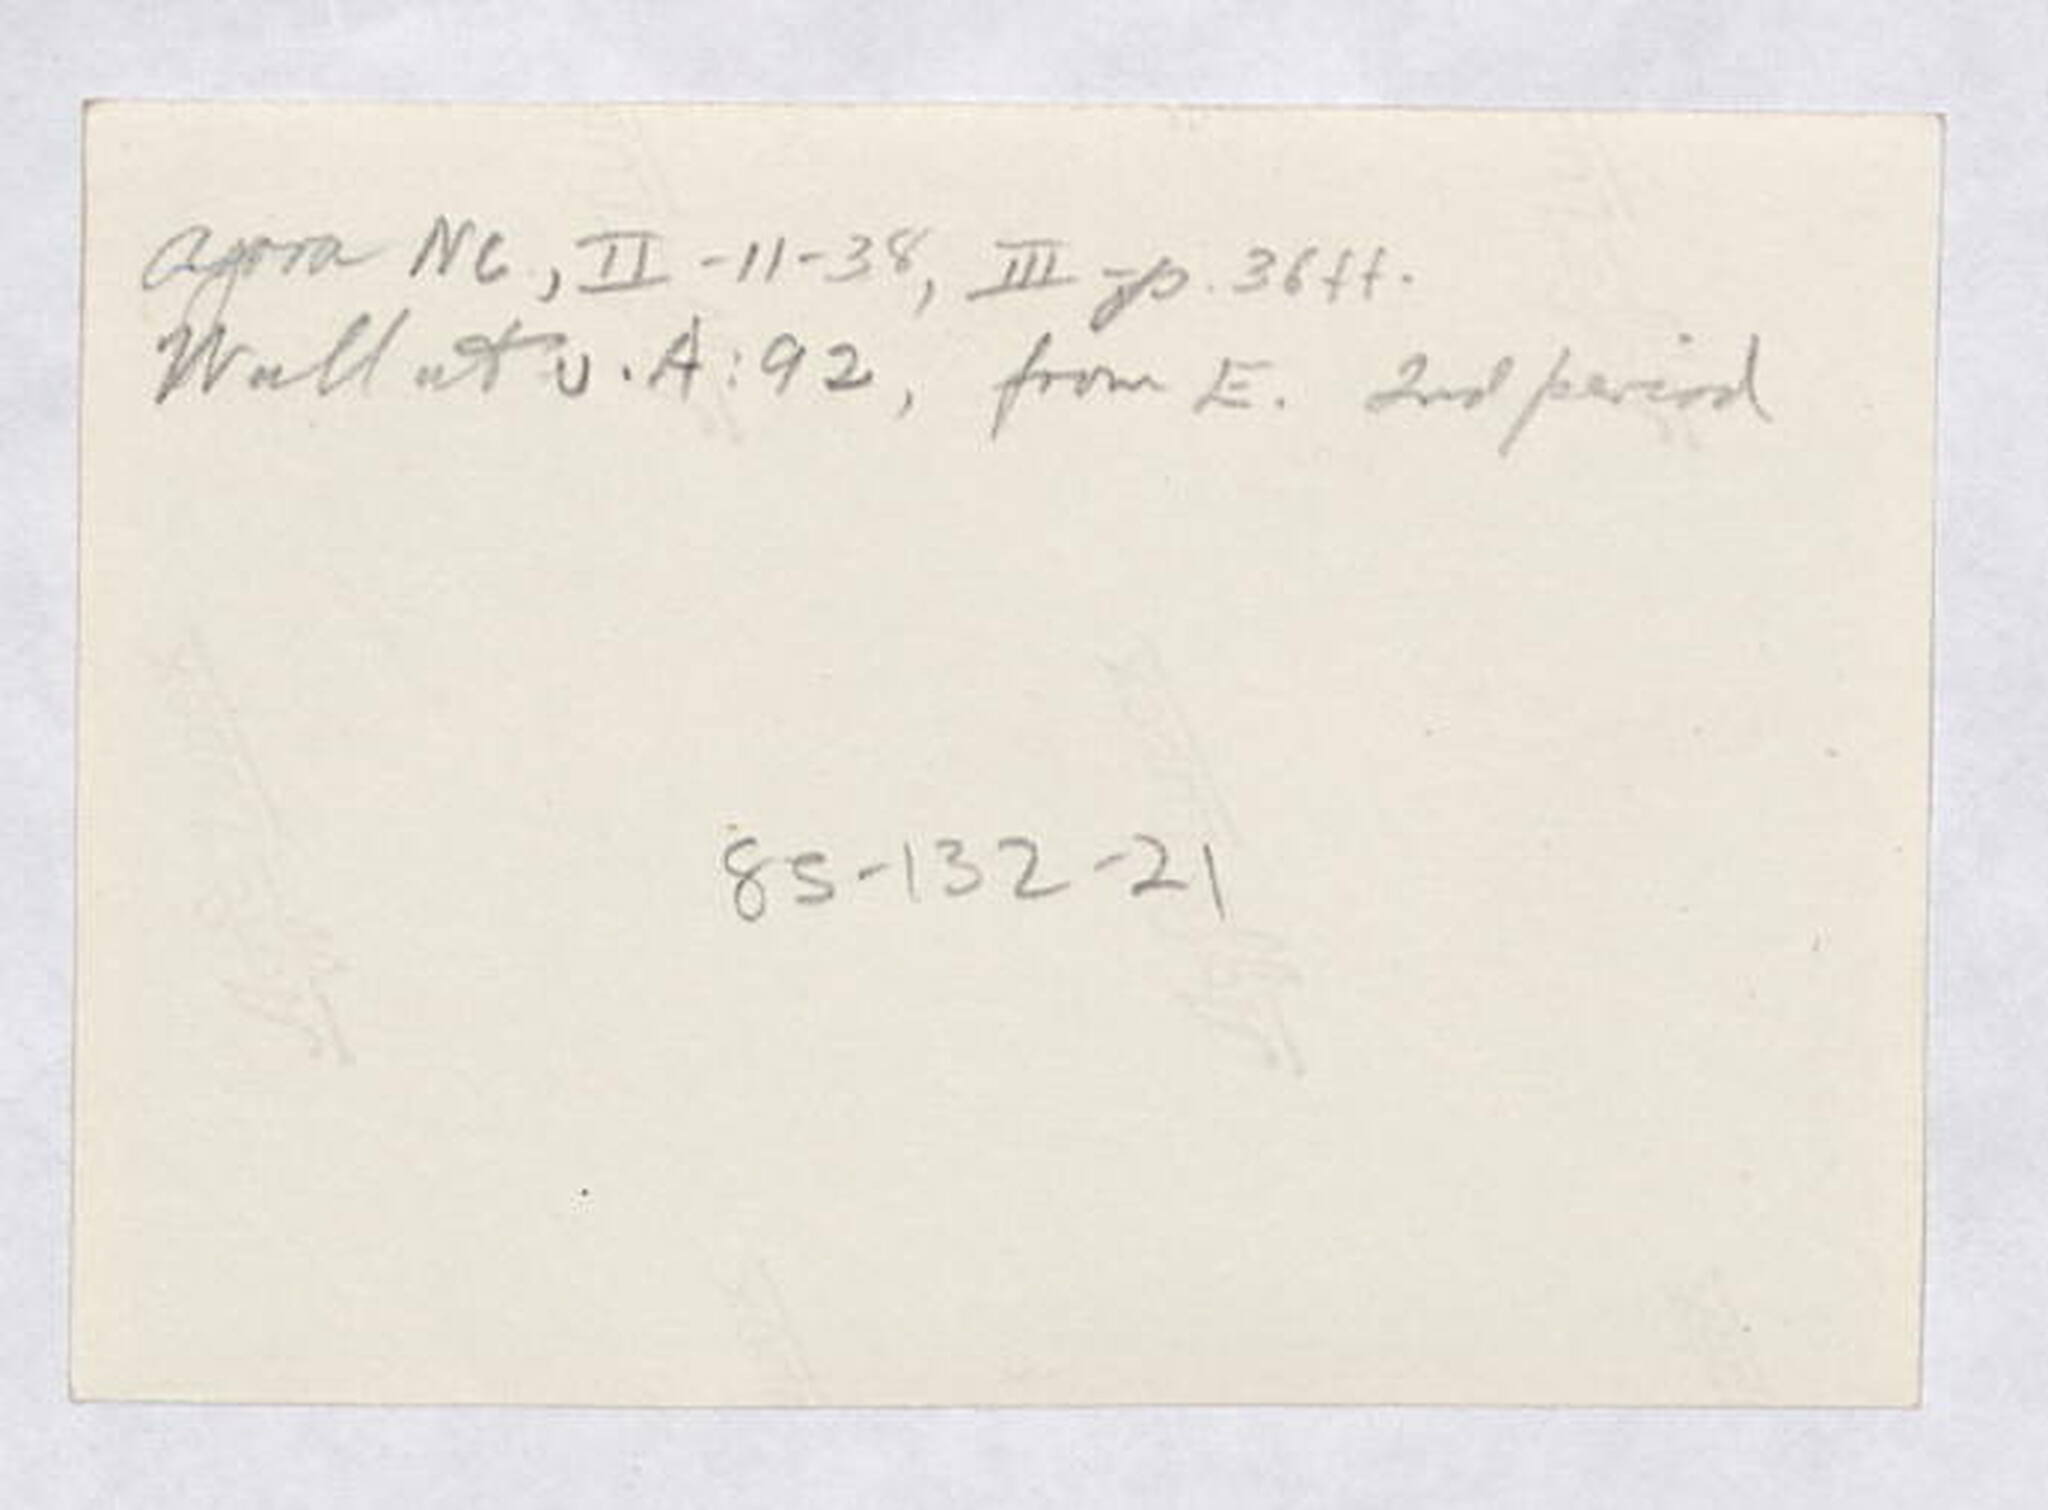 Agora NC, II-11-38, III - p. 36 ff.
Wall at υ.A:92, from E. 2nd period
85-132-21